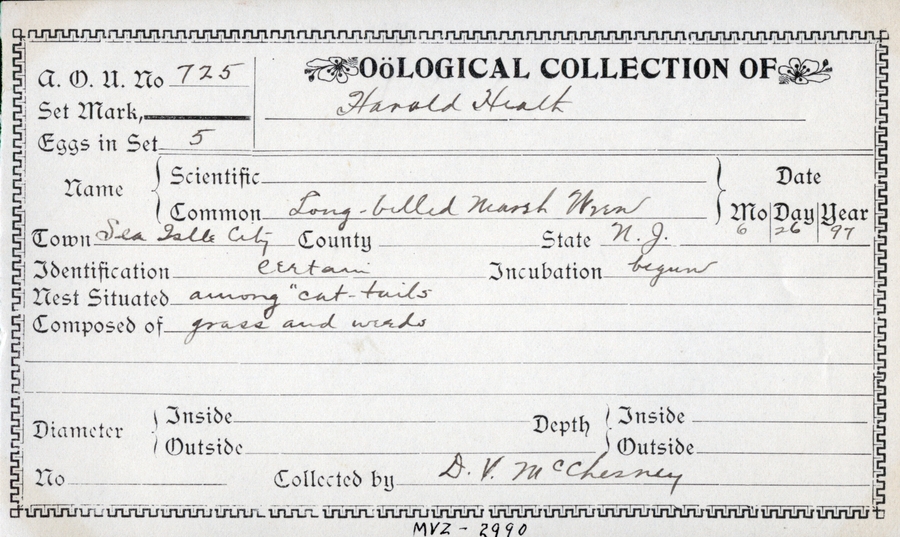 A. O. U. No 725 OöLOGICAL COLLECTION OF
Set Mark, Harold Heath
Eggs in Set 5
Name Scientific Date
Common Long-billed Marsh Wren Mo Day Year
Town Sea Isle City County State N. J. 6 26 97
Identification certain Incubation begun
Nest Situated among "cat-tails
Composed of grass and weeds
Diameter Inside Depth Inside
Outside Outside
No Collected by D. V. McChesney
MVZ - 2990